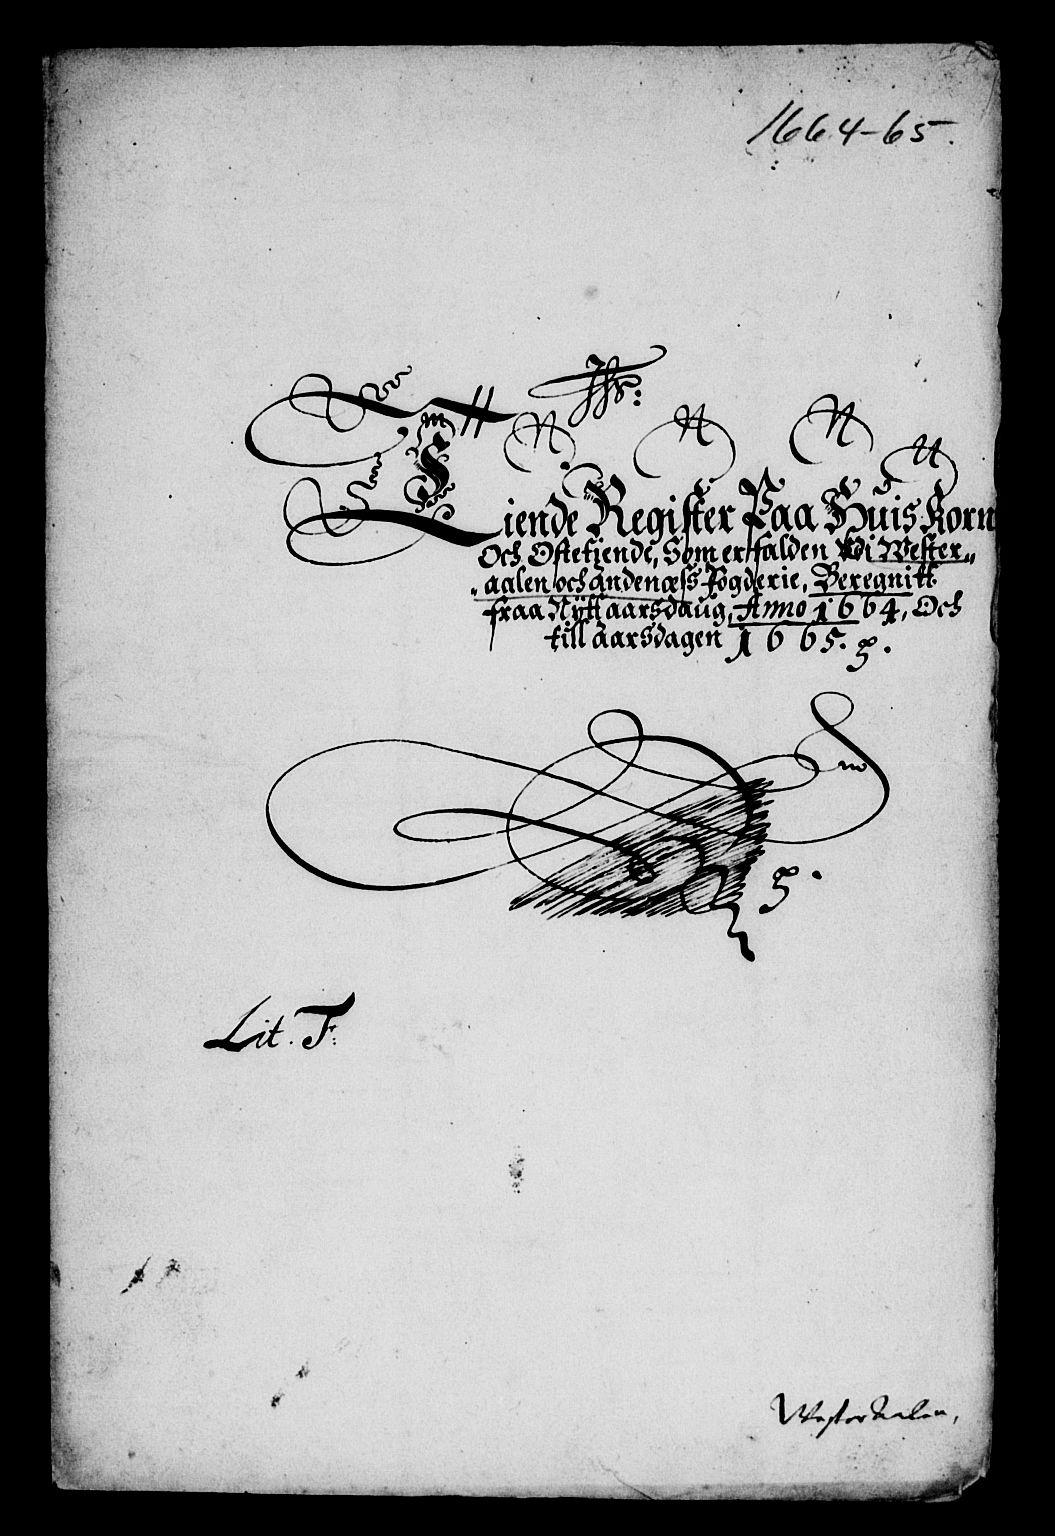 1664-65.
Tiende Register Paa Huis Korn
Och Ostetiende, Som er falden Wi Wester„
„aalen och andenæss Fogderie, Beregnitt
fraa Nÿtt aarsdaug, Anno 1664, Och
till aarsdagen 1665.
Lit. F:
Westeraalen,